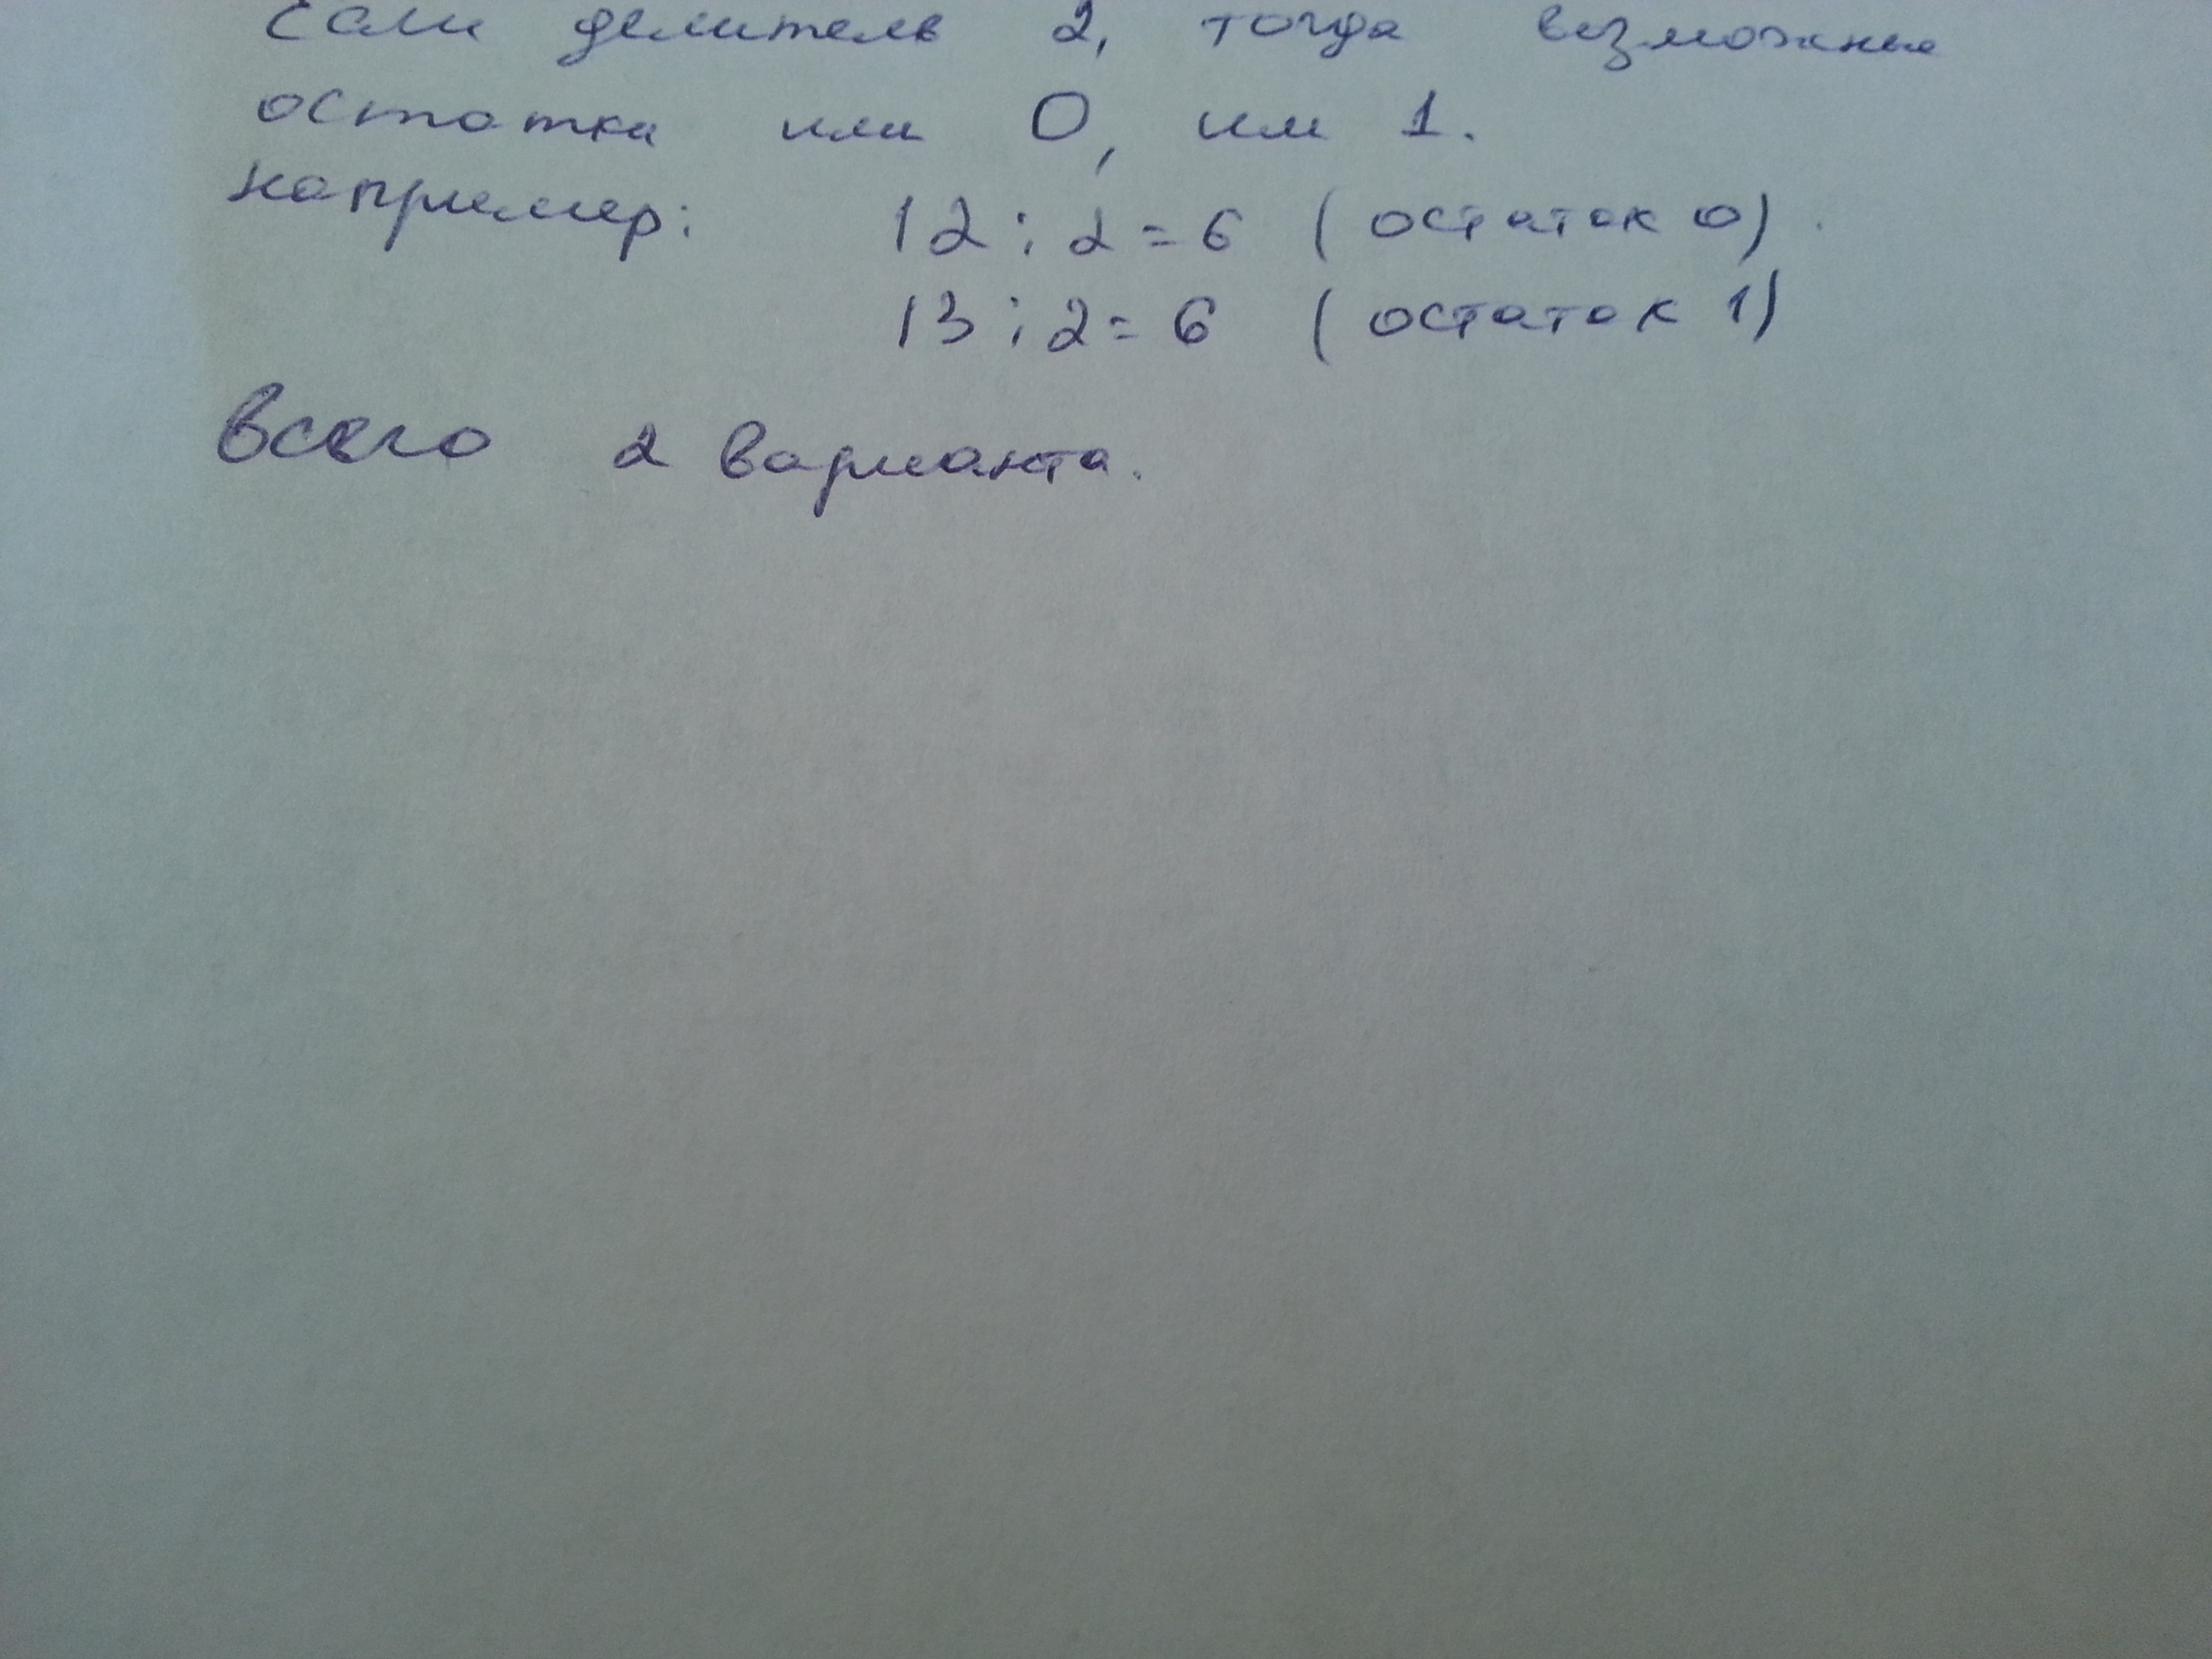 Если делитель 2, тогда возможные
остатки или 0, или 1.
например: 12 : 2 = 6 (остаток 0).
13 : 2 = 6 (остаток 1)
Всего 2 варианта.